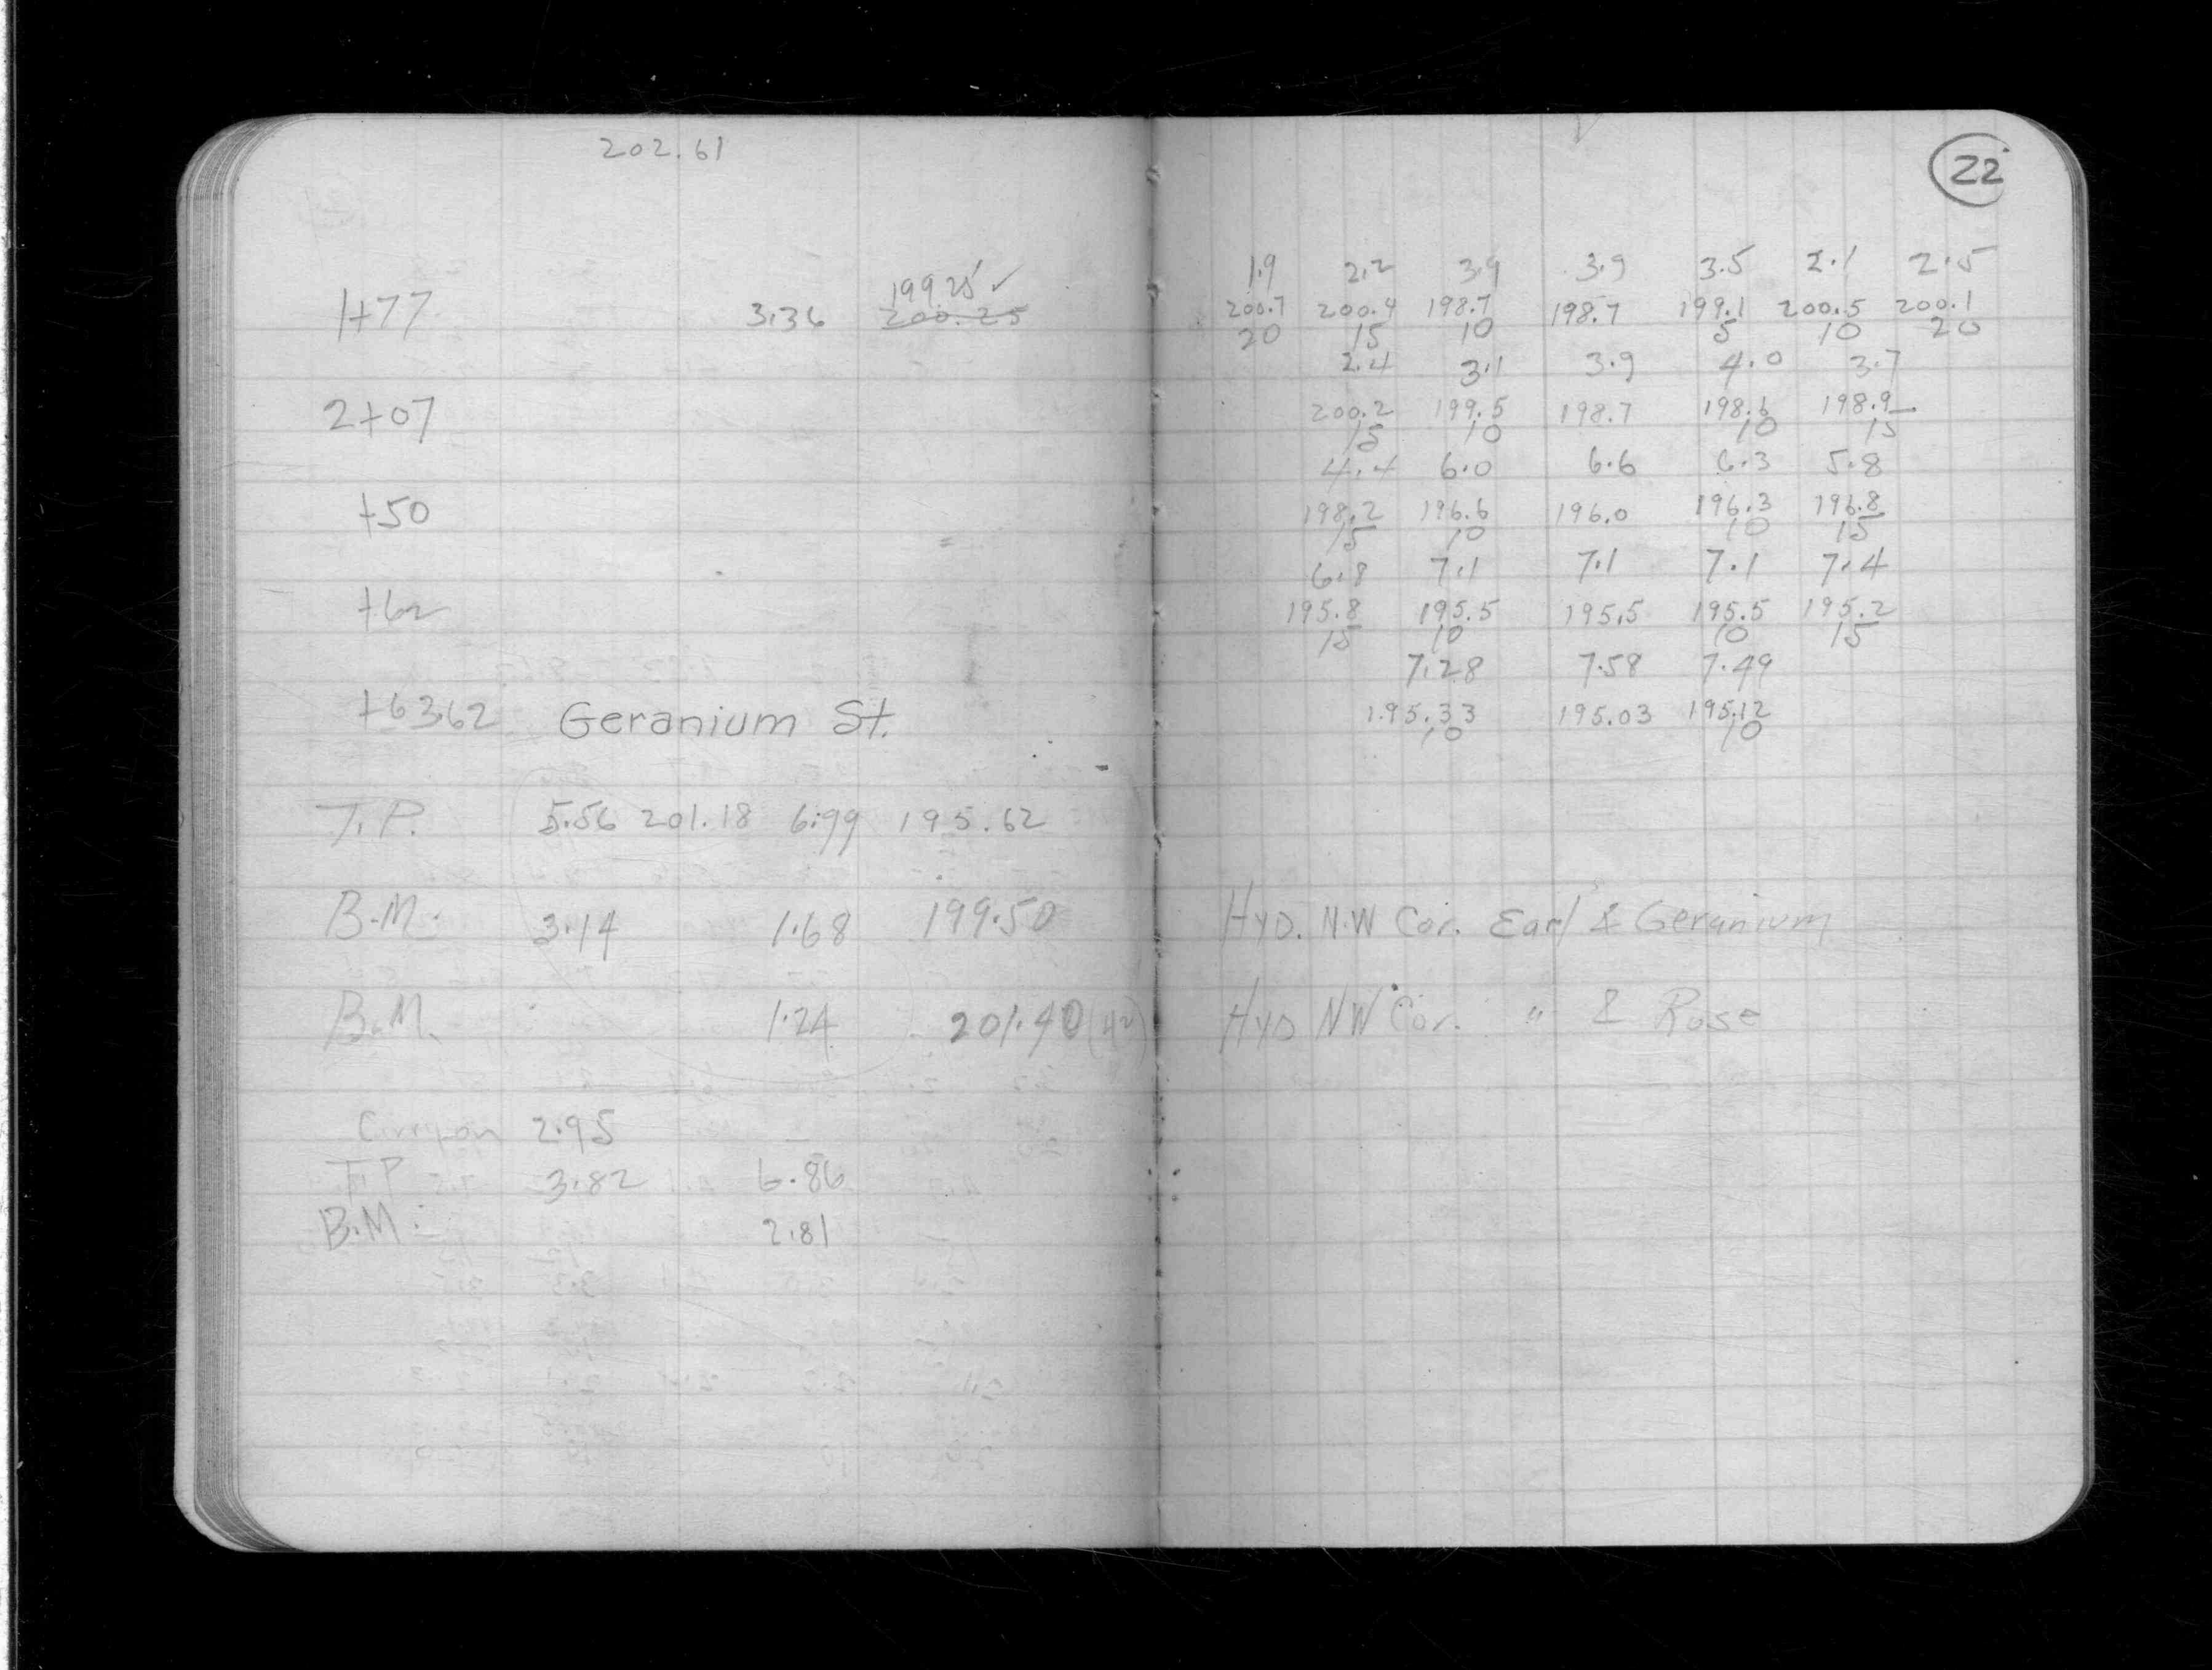 202.61
22
199.25 ✓
1+77 3.36 200.25
1.9 2.2 3.9 3.9 3.5 2.1 2.5
200.7 200.4 198.7 198.7 199.1 200.5 200.1
20 15 10 5 10 20
2.4 3.1 3.9 4.0 3.7
2+07
200.2 199.5 198.7 198.6 198.9
15 10 10 15
4.4 6.0 6.6 6.3 5.8
+50
198.2 196.6 196.0 196.3 196.8
15 10 10 15
6.8 7.1 7.1 7.1 7.4
+62
195.8 195.5 195.5 195.5 195.2
15 10 10 15
7.28 7.58 7.49
+63.62 Geranium St.
195.33 195.03 195.12
10 10
T.P. 5.56 201.18 6.99 195.62
B.M. 3.14 1.68 199.50 Hyd. N.W Cor. Earl & Geranium
B.M. 1.24 201.40 (42) Hyd NW Cor. " & Rose
2.95
T.P 3.82 6.86
B.M. 2.81